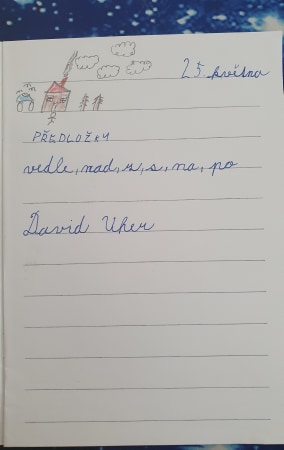 25. května
PŘEDLOŽKY
vedle, nad, z, s, na, po
David Uher